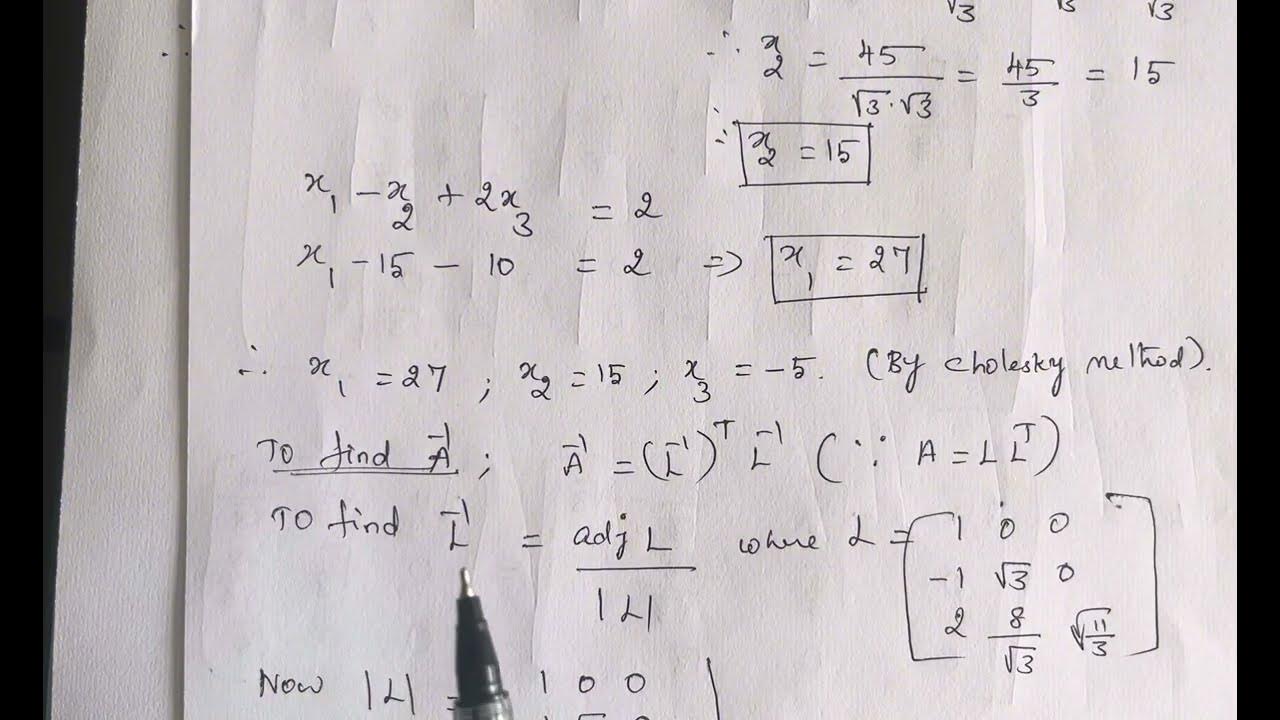 √3 √3 √3
∴ x₂ = 45/(√3·√3) = 45/3 = 15
∴ x₂ = 15
x₁ - x₂ + 2x₃ = 2
x₁ - 15 - 10 = 2 ⇒ x₁ = 27
∴ x₁ = 27 ; x₂ = 15 ; x₃ = -5. (By Cholesky method).
To find A⁻¹ ; A⁻¹ = (L⁻¹)ᵀ L⁻¹ (∵ A = L Lᵀ)
To find L⁻¹ = adj L / |L| where L = [1 0 0
-1 √3 0
2 8/√3 √(11/3)]
Now |L| = 1 0 0